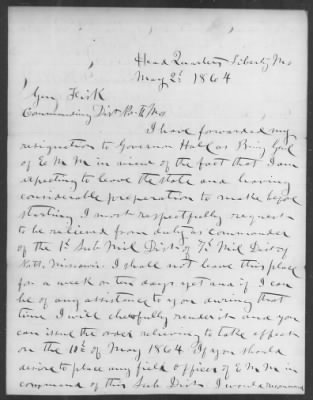 Head Quarters Liberty Mo
May 2d 1864
Gen Fisk
Commanding Dist No Mo
I have forwarded my
resignation to Governor Hall as Brig Genl
of E M M in view of the fact that I am
expecting to leave the state and having
considerable preperation to make before
starting I most respectfully request
to be relieved from duty as commander
of the 1st Sub Mil Dist of 7th Mil Dist of
North Missouri. I shall not leave this place
for a week or ten days yet and if I can
be of any assistance to you during that
time I will cheerfully render it and you
can issue the order relieving to take affect
on the 10th of May 1864 If you should
desire to place any field officer of E M M in
command of this Sub Dist I would recommend